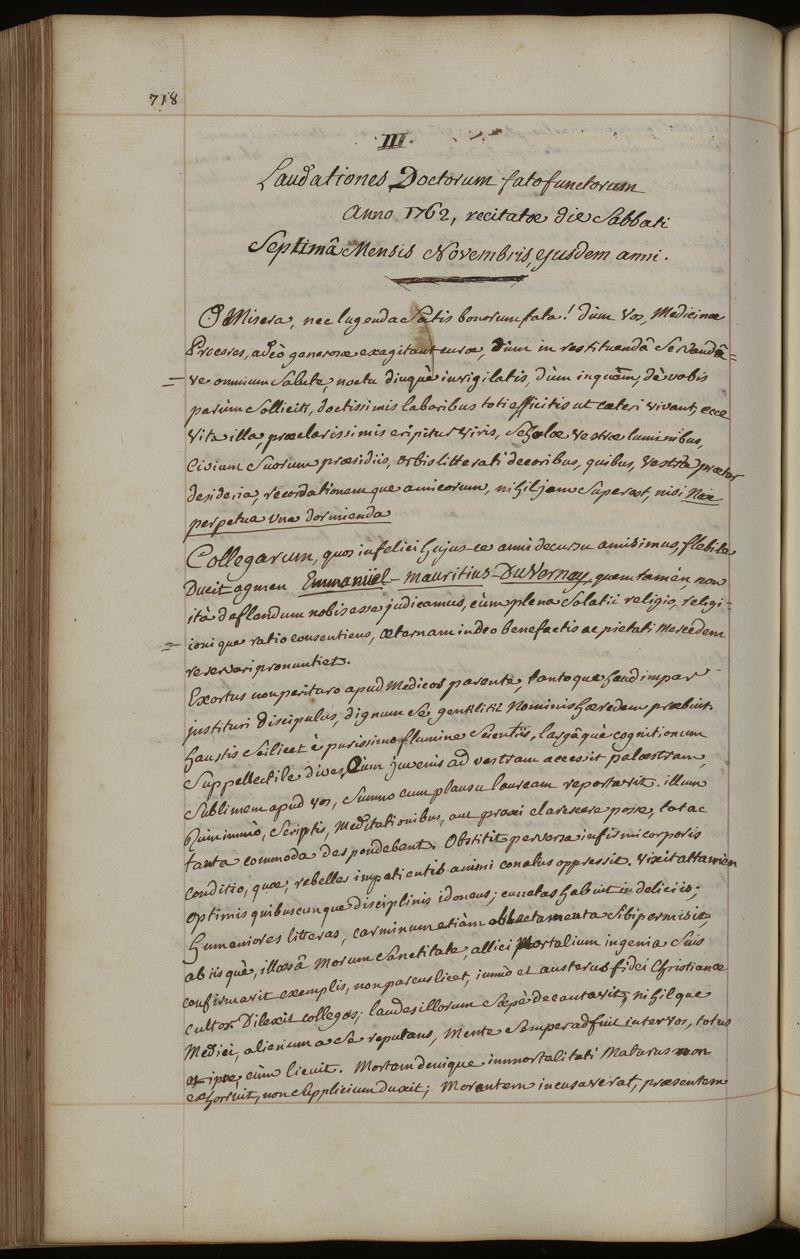 718
III.
Laudationes Doctorum fatofunctorum
Anno 1762, recitatæ die Sabbati
Septimâ Mensis Novembris, ejusdem anni.
O Misera, nec lugenda Satis bonorum fata! Dùm Vos, Medicinæ
Proceres, adeò generosæ exagitant curæ, Dùm in restituendâ Servandâ=
=ve omnium Salute, noctu diuquè invigilatis, Dùm inquam, de vobis
parùm Solliciti, doctissimis laboribus toti efficitis ut cæteri vivant, ecce
Vita illa præclarissimis eripitur Viris, Scholæ Vestræ luminibus,
Civium Suorum præsidiis, orbis litterati decoribus, quibus, Vestra præter
desideria, recordationemque amicorum, nihil jam Superest, nisi Nox
perpetua una dormienda
Collegarum, quos infelici hujus-ce anni decursu amisimus, flebile
Ducit agmen Emmanüel-Mauritius-DuVernay, quem tamèn, non
ità deflandum nobis esse judicamus, cùm plena Solatii religio, religi=
=ionique ratio consentiens, æternam in deo benefactis ac pietati Mercedem
reservari pronuntiet.
Exortus non perituro apud Medicos parente, tantoque haud impar
justituri Discipulus, dignum Se gentilitii Nominis hæredem præbuit.
haustis Scilicet è purissimo flumine Scientiis, largâquè cognitionum
Suppellectile dives, Cùm juvenis ad vestram accessit palæstram,
Sublimem apud vos, Summo cum plausu lauream reportavit. illum
Quinimmò, Scriptis, Meditationibus, aut praxi clarescere posse, tot ac
tanta commoda despondebant. Obstitit perversa infirmi corporis
Conditio, quæ, rebelles impatientis animi conatus oppressit. Vixit attamèn
optimis quibuscunque disciplinis idoneus; cunctas habuit in deliciis;
humaniores litteras, carminum etiàm oblectamenta Sibi permisit,
ab iis què, illæsâ Morum Sanctitate, allici Mortalium ingenia Suis
confirmavit exemplis, non parcus licet, immò et austerus fidei Christianæ
cultor. Dilexit collegas; laudes illorum Sæpè decantavit; nihilque
Medici, alienum a Se reputans, Mente Semper adfuit inter vos, totus
et ipse, cùm licuit. Mortem denique immortalitati Maturus non
exhorruit, non Supplicium duxit; Morantem incusaverat, præsentem